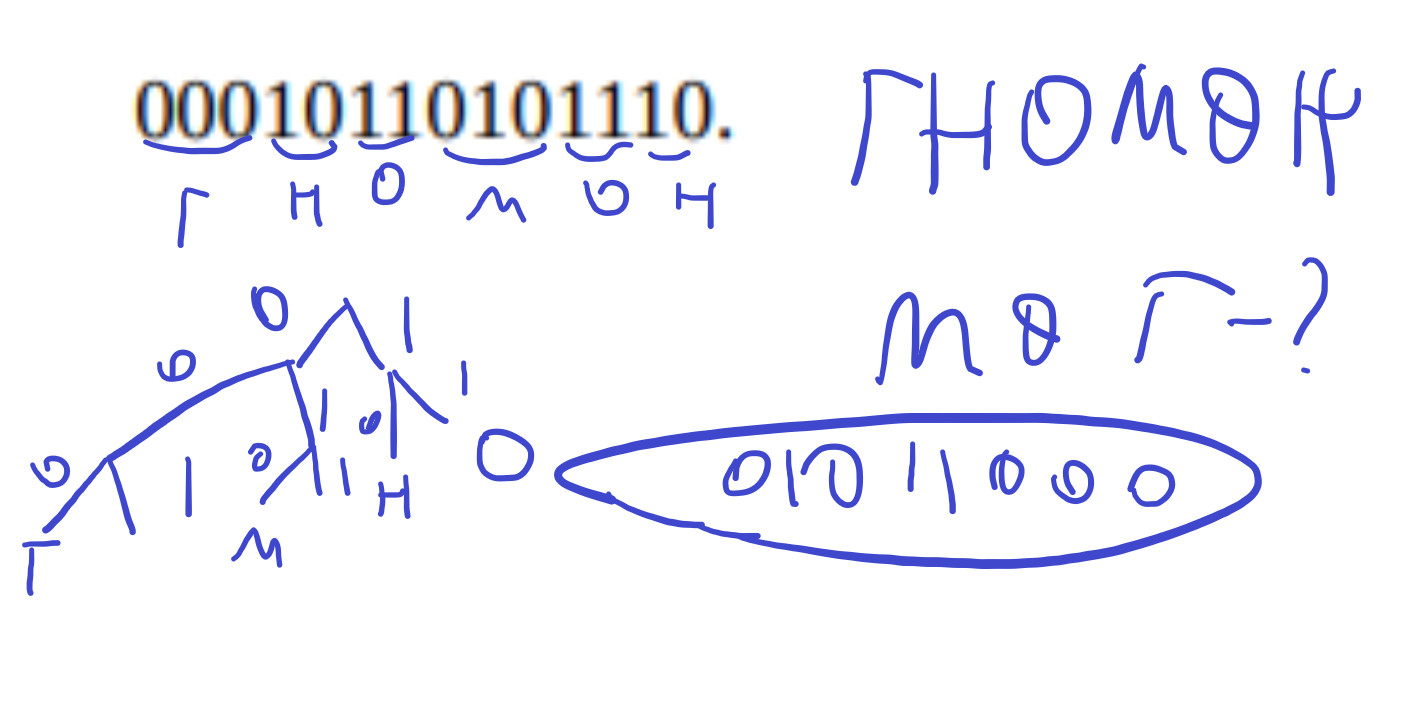 00010110101110. ГНОМОН
Г Н О М О Н
МОГ-?
0 1
0 1 0 1
0 1 0 1 Н О
Г М
01011000